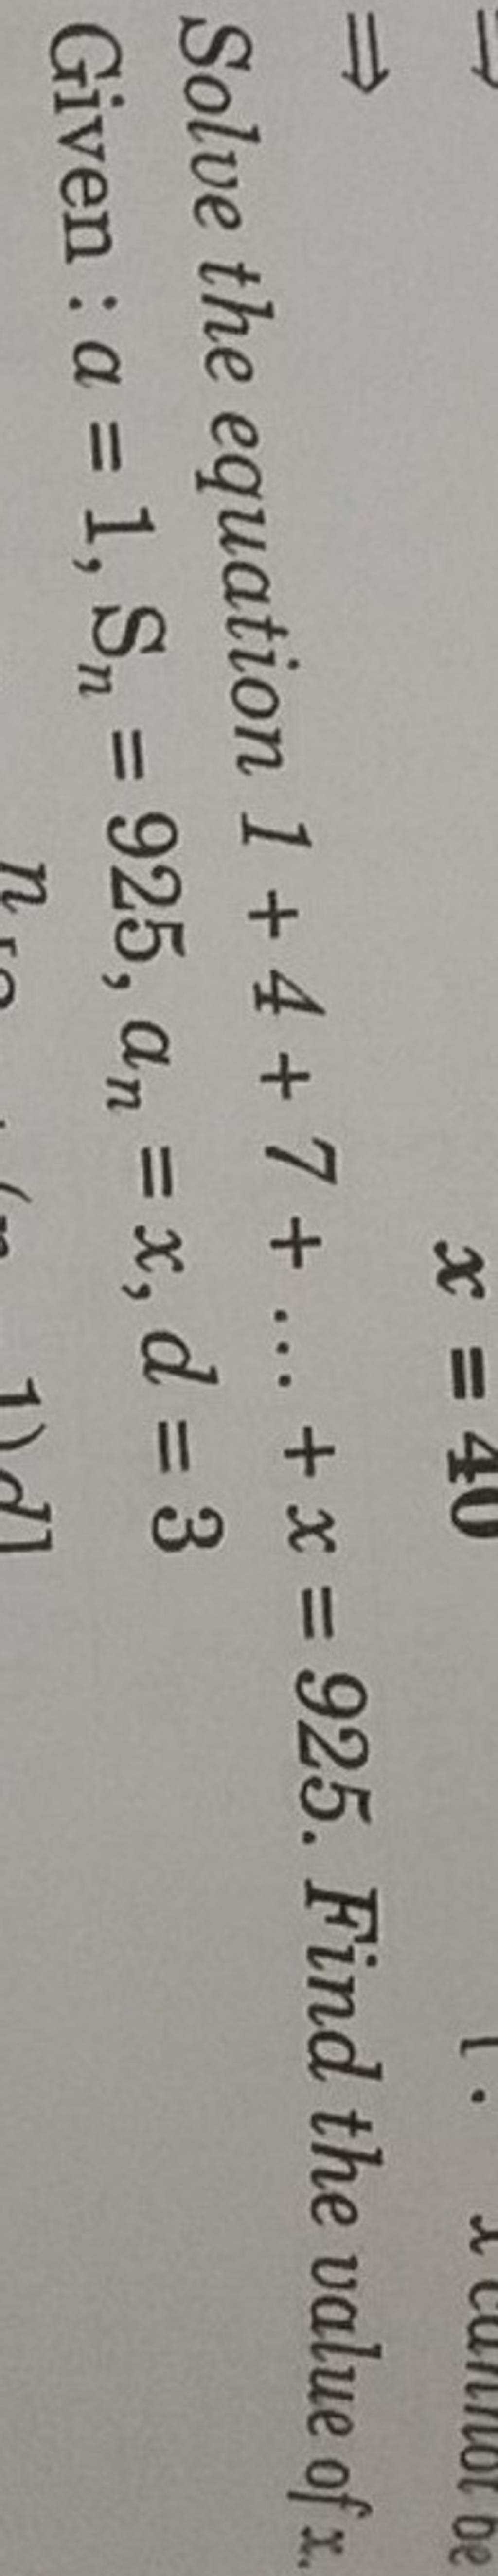 ⇒ x = 40 cannot be
Solve the equation 1 + 4 + 7 + ... + x = 925. Find the value of x.
Given : a = 1, Sₙ = 925, aₙ = x, d = 3